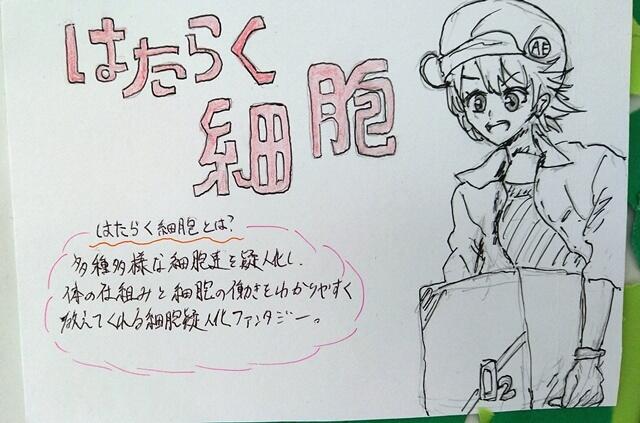 はたらく
細胞
AE
はたらく細胞とは?
多種多様な細胞達を擬人化し、
体の仕組みと細胞の働きをわかりやすく
教えてくれる細胞擬人化ファンタジー。
O2